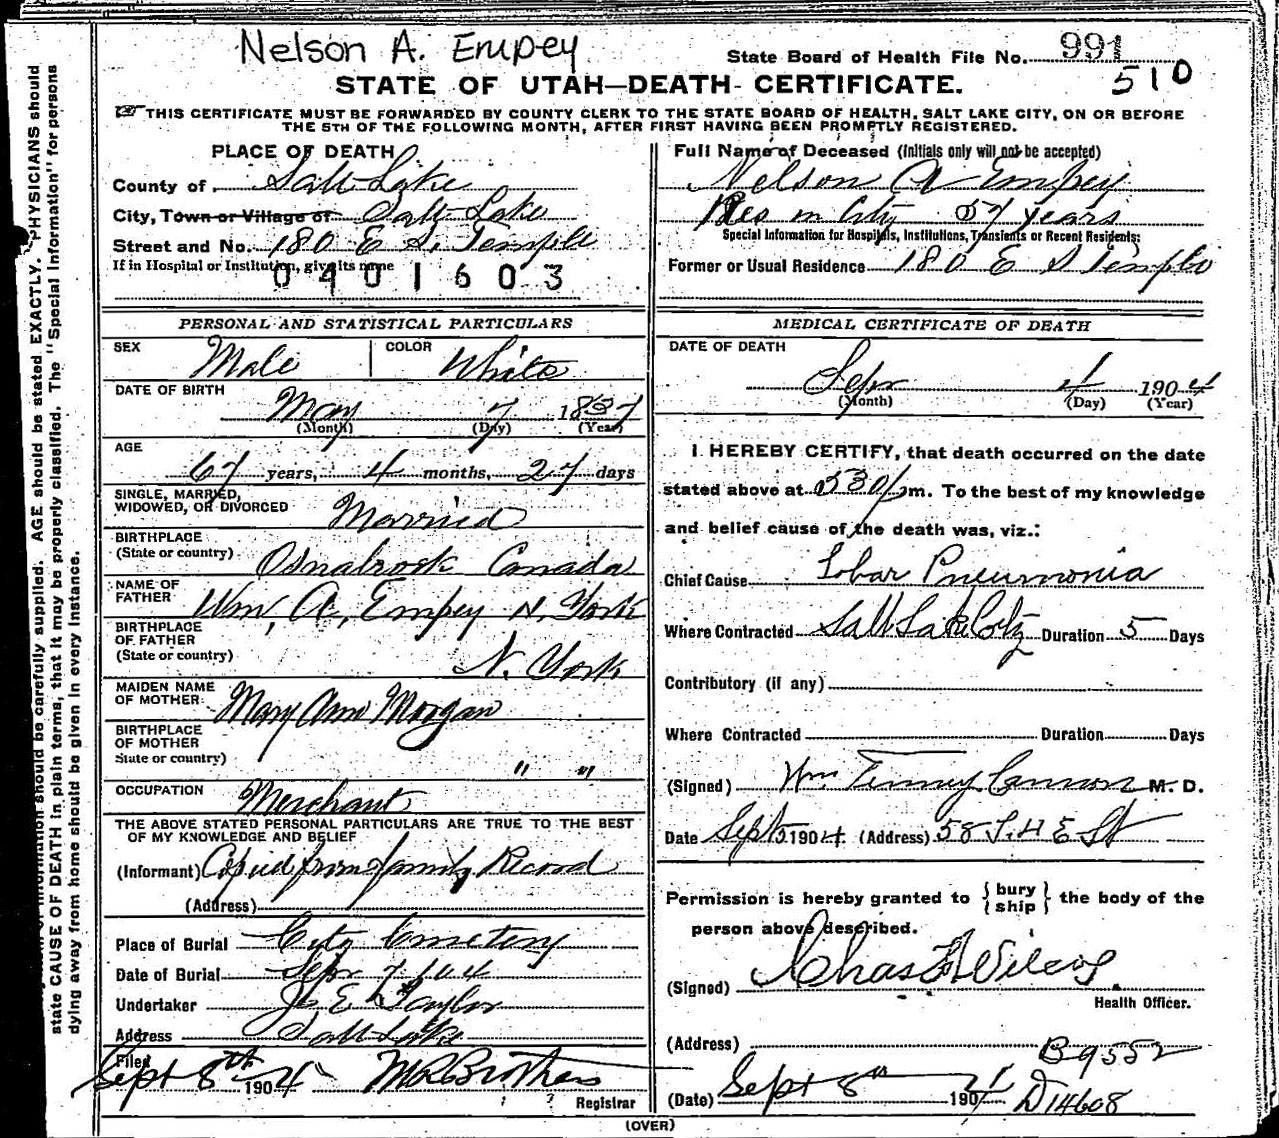 Nelson A. Empey
State Board of Health File No. 991
510
STATE OF UTAH—DEATH CERTIFICATE.
THIS CERTIFICATE MUST BE FORWARDED BY COUNTY CLERK TO THE STATE BOARD OF HEALTH, SALT LAKE CITY, ON OR BEFORE
THE 5TH OF THE FOLLOWING MONTH, AFTER FIRST HAVING BEEN PROMPTLY REGISTERED.
PLACE OF DEATH
County of Salt Lake
City, Town or Village of Salt Lake
Street and No. 180 E S. Temple
If in Hospital or Institution, give its name
0401603
Full Name of Deceased (Initials only will not be accepted)
Nelson A Empey
Res in City 57 Years
Special Information for Hospitals, Institutions, Transients or Recent Residents:
Former or Usual Residence 180 E S Temple
PERSONAL AND STATISTICAL PARTICULARS
SEX Male COLOR White
DATE OF BIRTH
May 7 1837
(Month) (Day) (Year)
AGE
67 years, 4 months, 27 days
SINGLE, MARRIED,
WIDOWED, OR DIVORCED Married
BIRTHPLACE
(State or country) Osnabrock Canada
NAME OF
FATHER Wm, A, Empey N. York
BIRTHPLACE
OF FATHER
(State or country) N. York
MAIDEN NAME
OF MOTHER Mary Ann Morgan
BIRTHPLACE
OF MOTHER
State or country) " "
OCCUPATION Merchant
THE ABOVE STATED PERSONAL PARTICULARS ARE TRUE TO THE BEST
OF MY KNOWLEDGE AND BELIEF
(Informant) Copied from family Record
(Address)
Place of Burial City Cemetery
Date of Burial Sept 7 104
Undertaker Jos E Taylor
Address Salt Lake
Filed
Sept 8th 1904 M R Brothers
Registrar
MEDICAL CERTIFICATE OF DEATH
DATE OF DEATH
Sepr 4 1904
(Month) (Day) (Year)
I HEREBY CERTIFY, that death occurred on the date
stated above at 530 p m. To the best of my knowledge
and belief cause of the death was, viz.:
Chief Cause Lobar Pneumonia
Where Contracted Salt Lake City Duration 5 Days
Contributory (if any)
Where Contracted Duration Days
(Signed) Wm. Tenney Cannon M. D.
Date Sept 5 1904. (Address) 58 E St
Permission is hereby granted to { bury ship } the body of the
person above described.
(Signed) Chas F Wilcox
Health Officer.
(Address) B9552
(Date) Sept 8th 1904 D14608
(OVER)
should be carefully supplied. AGE should be stated EXACTLY. PHYSICIANS should
state CAUSE OF DEATH in plain terms, that it may be properly classified. The "Special Information" for persons
dying away from home should be given in every instance.